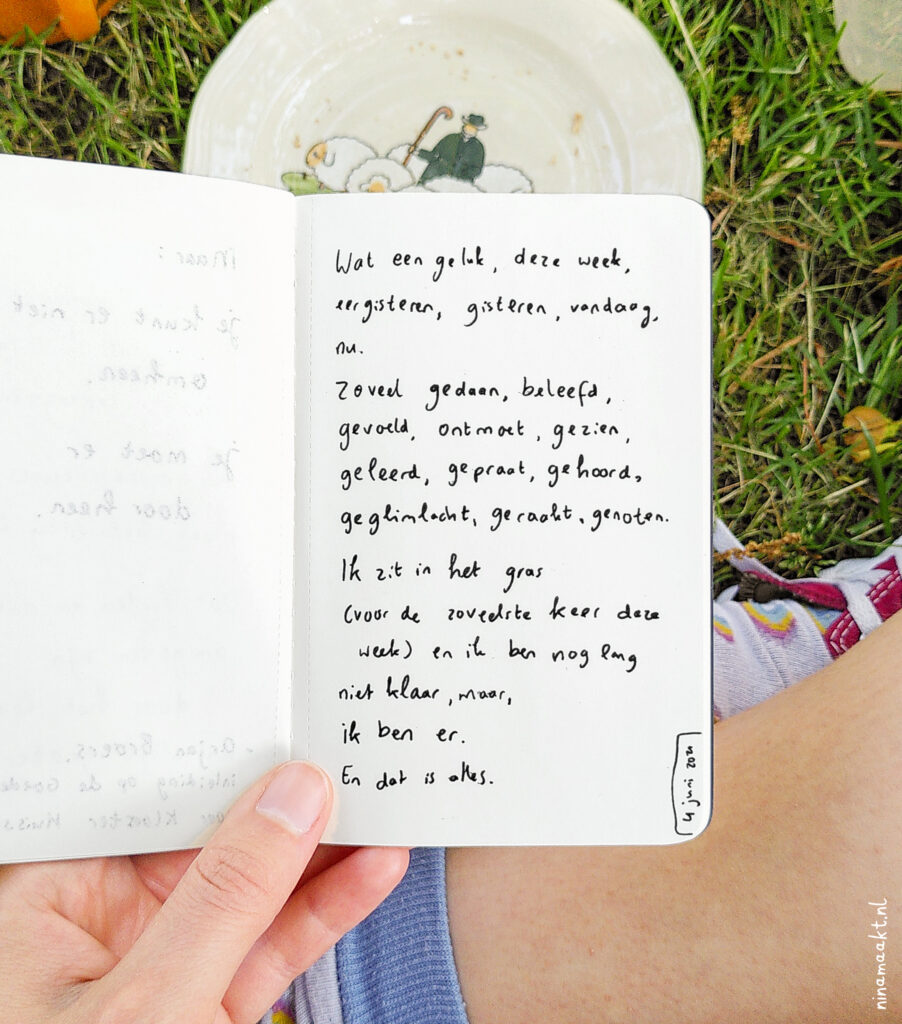 Maar:
je kunt er niet
omheen.
je moet er
doorheen.
- Arjan Broers,
inleiding op de Goede
Klooster
Wat een geluk, deze week,
eergisteren, gisteren, vandaag,
nu.
Zoveel gedaan, beleefd,
gevoeld, ontmoet, gezien,
geleerd, gepraat, gehoord,
geglimlacht, geraakt, genoten.
Ik zit in het gras
(voor de zoveelste keer deze
week) en ik ben nog lang
niet klaar, maar,
ik ben er.
En dat is alles.
4 juni 2021
ninamaakt.nl